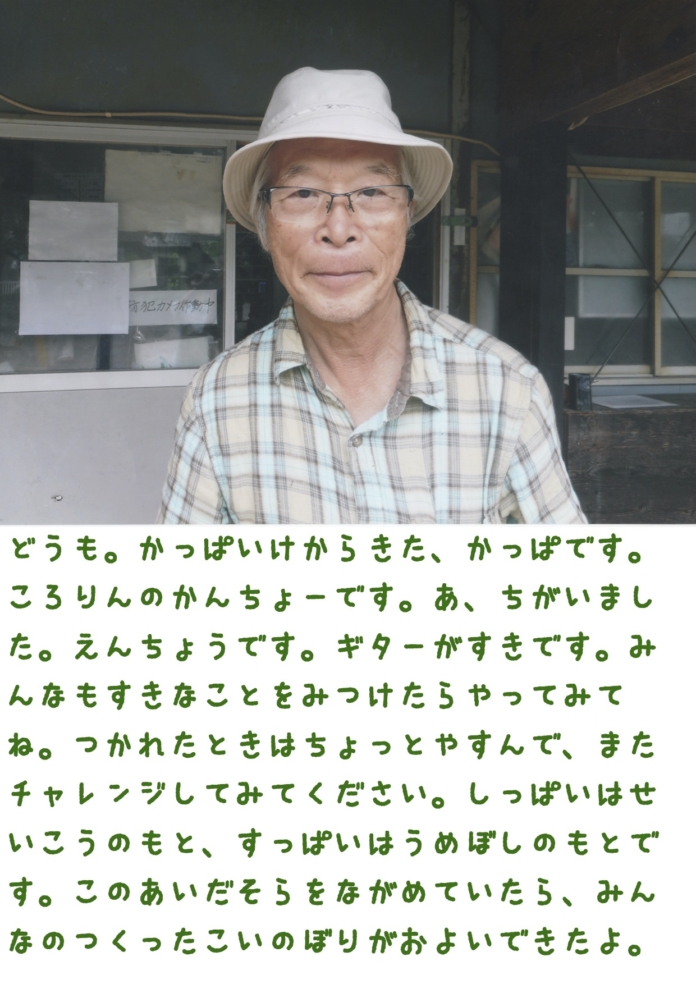 防犯カメラ作動中
どうも。かっぱいけからきた、かっぱです。
ころりんのかんちょーです。あ、ちがいまし
た。えんちょうです。ギターがすきです。み
んなもすきなことをみつけたらやってみて
ね。つかれたときはちょっとやすんで、また
チャレンジしてみてください。しっぱいはせ
いこうのもと、すっぱいはうめぼしのもとで
す。このあいだそらをながめていたら、みん
なのつくったこいのぼりがおよいできたよ。